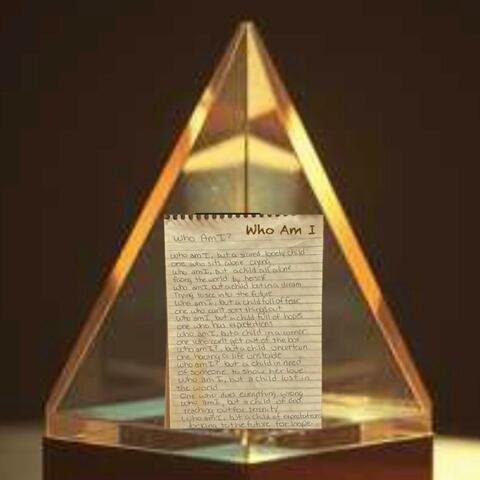 Who Am I
Who Am I?
Who am I, but a scared lonely child
one who sits alone crying
Who am I, but a child all alone
facing the world by herself
Who am I, but a child lost in a dream
Trying to see into the future
Who am I, but a child full of fear
one who can't sort things out
Who am I, but a child full of hopes
one who has expectations
Who am I, but a child in a corner
one who can't get out of the box
Who am I?, but a child uncertain
one having a life unstable
Who am I? but a child in need
of someone to show her love
Who am I, but a child lost in
the world
One who does everything wrong
Who am I, but a child of God
reaching out for serenity
Who am I, but a child of expectations
looking to the future for hope